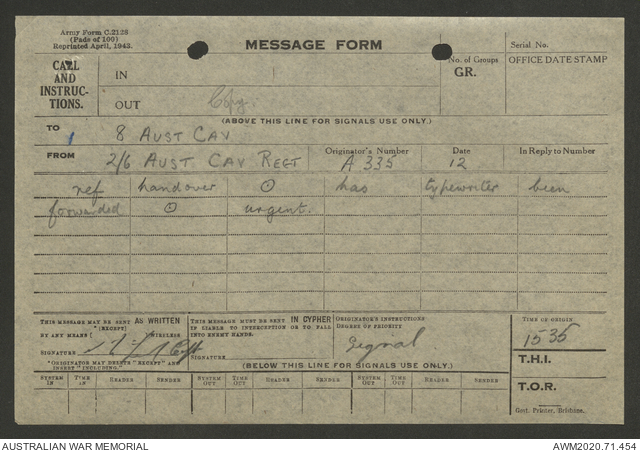 Army Form C.2128
(Pads of 100)
Reprinted April, 1943.
MESSAGE FORM
Serial No.
CALL AND INSTRUCTIONS.
IN
No. of Groups
GR.
OFFICE DATE STAMP
OUT
Copy.
(ABOVE THIS LINE FOR SIGNALS USE ONLY.)
TO 8 AUST CAV
FROM 2/6 AUST CAV REGT
Originator's Number
A 335
Date
12
In Reply to Number
ref handover ⊙ has typewriter been
forwarded ⊙ urgent.
THIS MESSAGE MAY BE SENT AS WRITTEN
BY ANY MEANS (EXCEPT) WIRELESS
SIGNATURE
"ORIGINATOR MAY DELETE "EXCEPT" AND INSERT "INCLUDING."
THIS MESSAGE MUST BE SENT IN CYPHER
IF LIABLE TO INTERCEPTION OR TO FALL
INTO ENEMY HANDS.
SIGNATURE
ORIGINATOR'S INSTRUCTIONS
DEGREE OF PRIORITY
Signal.
TIME OF ORIGIN
1535
T.H.I.
T.O.R.
(BELOW THIS LINE FOR SIGNALS USE ONLY.)
SYSTEM IN TIME IN READER SENDER SYSTEM OUT TIME OUT READER SENDER SYSTEM OUT TIME OUT READER SENDER
Govt. Printer, Brisbane.
AUSTRALIAN WAR MEMORIAL
AWM2020.71.454